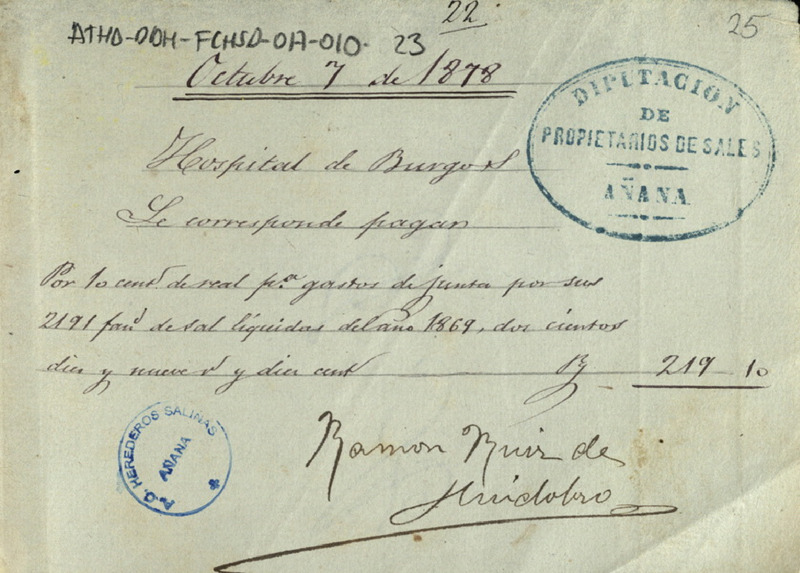 22
25
ATHA-DDH-FCHSD-017-010-23
Octubre 7 de 1878
DIPUTACIÓN
DE
PROPIETARIOS DE SALES
AÑANA
Hospital de Burgos
Le corresponde pagar
Por 10 centˢ de real pᵃ gastos de junta por sus
2191 fanˢ de sal líquidas del año 1869, dos cientos
diez y nueve rˢ y diez centˢ Rˢ 219 10
A.G. HEREDEROS SALINAS
AÑANA
Ramon Ruiz de
Huidobro